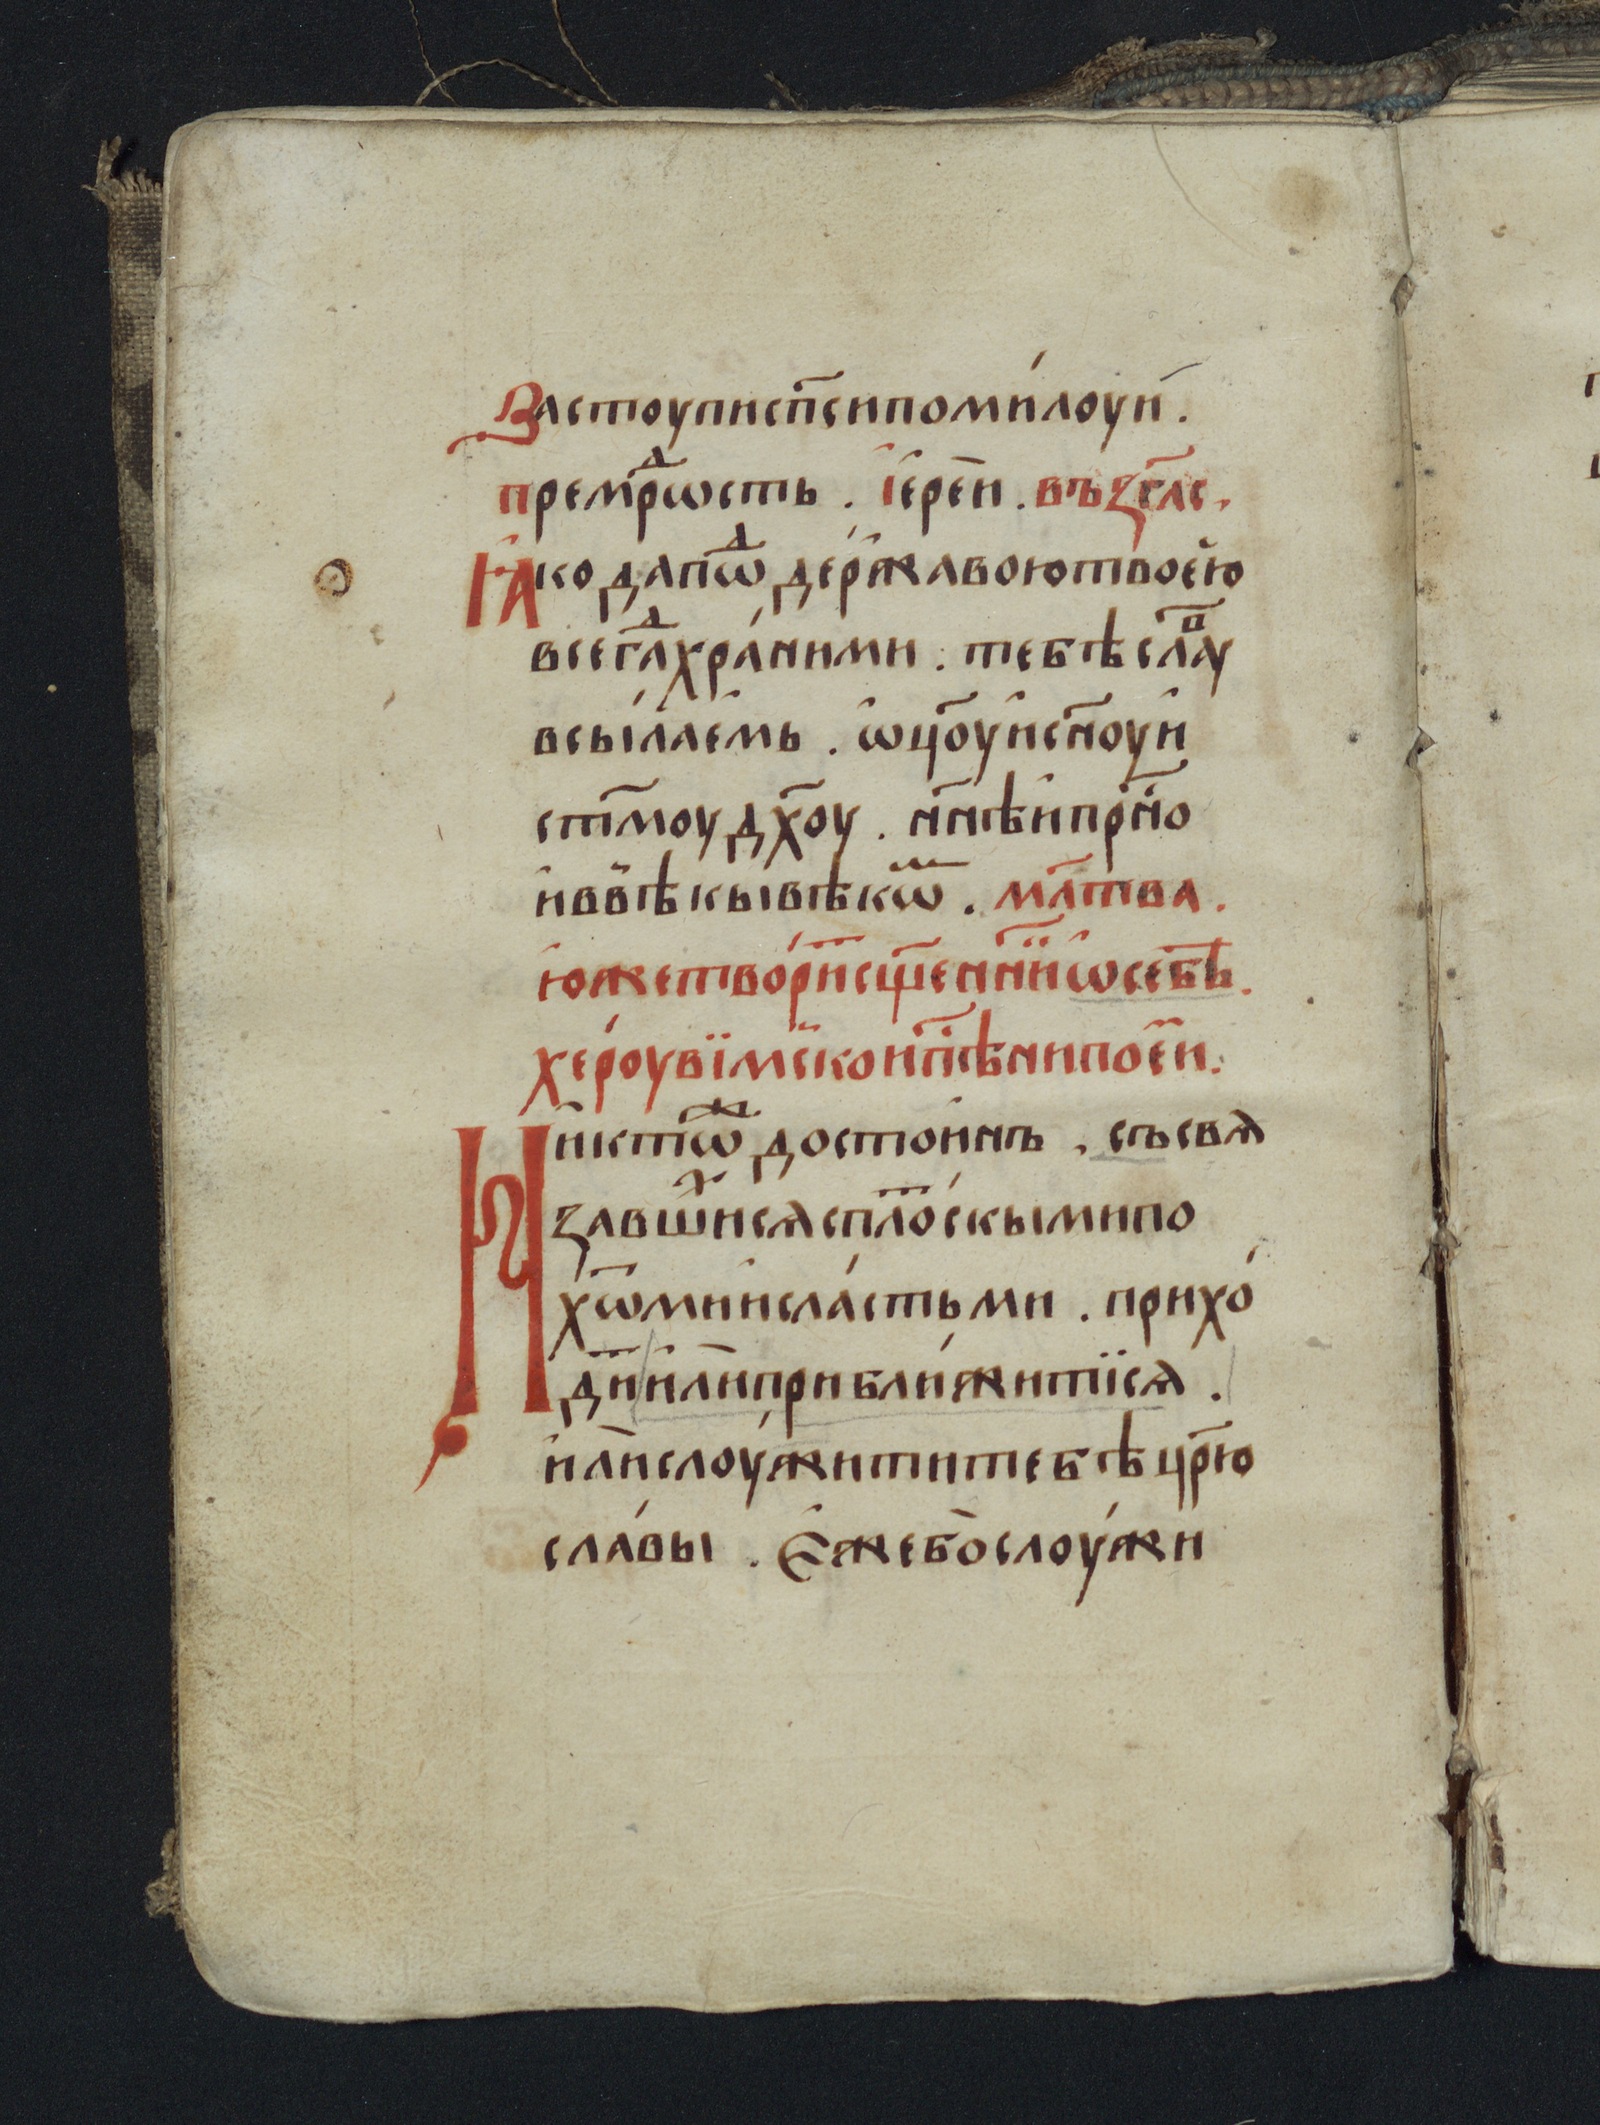 Застоуписп҃сипоми́лоуй.
премрⷣ҇ѡсть. іере́й. въꙁгл҃с.
Ꙗ҆кодапѡⷣ державоютвоею
всегⷣа҇хра́ними. тебѣслаⷡ҇у
всыла́емь. ѡ҆ц҃оуи҆сн҃оуи҆
ст҃моудх҃оу. нн҃ѣи҆прⷭ҇но
и҆ввѣкывѣкѡⷨ. мл҃тва.
ю҆жетвори́тсщ҃еннїиѡсебѣ.
хероуви́мскойпѣ҃снипоем҃ѣи.
Никтѡⷤ достоинъ. съсвѧ
ꙁавшиⷯсѧспло́тскымипо
хѿмии҆сла́стьми. прихо́
ди҃тии҆ли҆прибли́житїсѧ.
и҆ли҆слоужитите бѣцр҃ю
сла́вы. Є҆жебослоужи